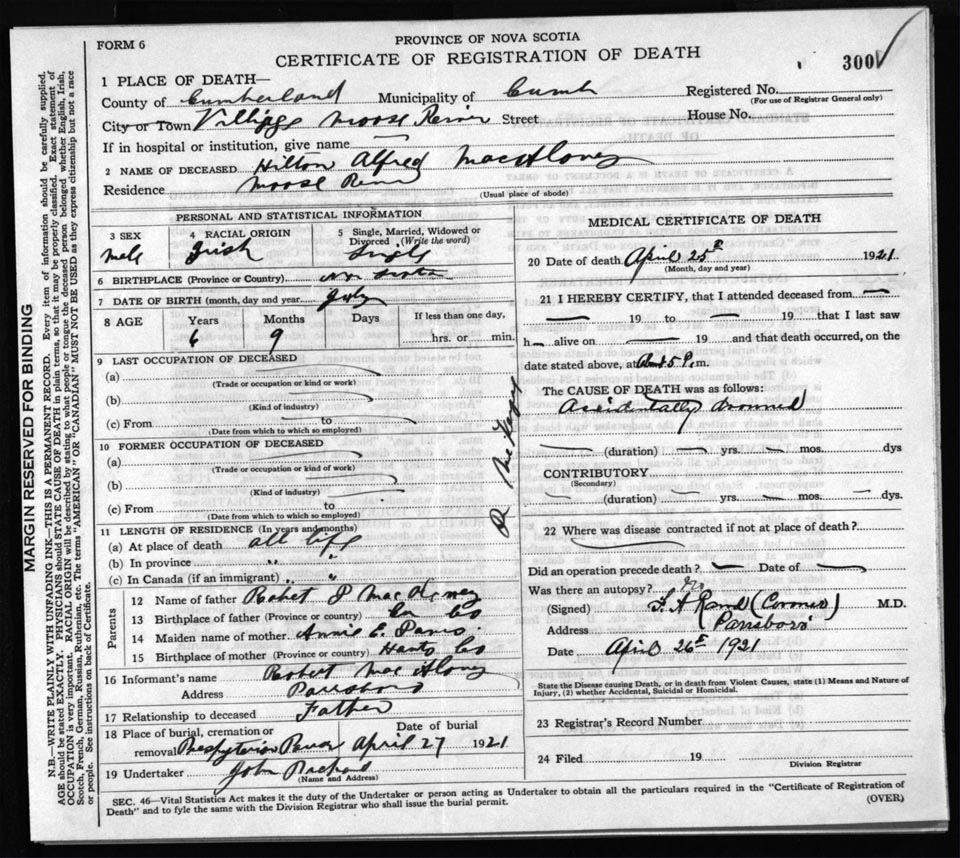 FORM 6
PROVINCE OF NOVA SCOTIA
CERTIFICATE OF REGISTRATION OF DEATH
300
1 PLACE OF DEATH—
County of Cumberland Municipality of Cumb Registered No.
(For use of Registrar General only)
City or Town Village Moose River Street House No.
If in hospital or institution, give name
2 NAME OF DECEASED Hilton Alfred MacAloney
Residence Moose River
(Usual place of abode)
PERSONAL AND STATISTICAL INFORMATION
3 SEX 4 RACIAL ORIGIN 5 Single, Married, Widowed or Divorced (Write the word)
male Irish Single
6 BIRTHPLACE (Province or Country) Nova Scotia
7 DATE OF BIRTH (month, day and year) July
8 AGE Years Months Days If less than one day,
6 9 hrs. or min.
9 LAST OCCUPATION OF DECEASED
(a)
(Trade or occupation or kind or work)
(b)
(Kind of industry)
(c) From to
(Date from which to which so employed)
10 FORMER OCCUPATION OF DECEASED
(a)
(Trade or occupation or kind of work)
(b)
(Kind of industry)
(c) From to
(Date from which to which so employed)
11 LENGTH OF RESIDENCE (In years and months)
(a) At place of death all life
(b) In province "
(c) In Canada (if an immigrant) " "
Parents
12 Name of father Robert MacAloney
13 Birthplace of father (Province or country) Co
14 Maiden name of mother Annie E.
15 Birthplace of mother (Province or Country) Hants Co
16 Informant's name Robert MacAloney
Address Parrsboro
17 Relationship to deceased Father
18 Place of burial, cremation or removal Presbyterian River Date of burial April 27 1921
19 Undertaker John
(Name and Address)
MEDICAL CERTIFICATE OF DEATH
20 Date of death April 25 1921
(Month, day and year)
21 I HEREBY CERTIFY, that I attended deceased from —
— 19 to — 19 that I last saw
h— alive on — 19 and that death occurred, on the
date stated above, at About 5 P.m.
The CAUSE OF DEATH was as follows:
Accidentally drowned
(duration) — yrs. — mos. dys
CONTRIBUTORY
(Secondary)
(duration) — yrs. — mos. — dys.
22 Where was disease contracted if not at place of death?
Did an operation precede death? — Date of —
Was there an autopsy? No
(Signed) F. A. Rand (Coroner) M.D.
Address Parrsboro
Date April 26 1921
State the Disease causing Death, or in death from Violent Causes, state (1) Means and Nature of
Injury, (2) whether Accidental, Suicidal or Homicidal.
23 Registrar's Record Number
24 Filed 19
Division Registrar
SEC. 46—Vital Statistics Act makes it the duty of the Undertaker or person acting as Undertaker to obtain all the particulars required in the "Certificate of Registration of
Death" and to fyle the same with the Division Registrar who shall issue the burial permit. (OVER)
MARGIN RESERVED FOR BINDING
N.B.—WRITE PLAINLY WITH UNFADING INK—THIS IS A PERMANENT RECORD. Every item of information should be carefully supplied.
AGE should be stated EXACTLY. PHYSICIANS should STATE CAUSE OF DEATH in plain terms, so that it may be properly classified. Exact statement of
OCCUPATION is very important. RACIAL ORIGIN will be described by stating to what people or tongue the deceased person belonged whether English, Irish,
Scotch, French, German, Russian, Ruthenian, etc. The terms "AMERICAN" OR "CANADIAN" MUST NOT BE USED as they express citizenship but not a race
or people. See instructions on back of Certificate.